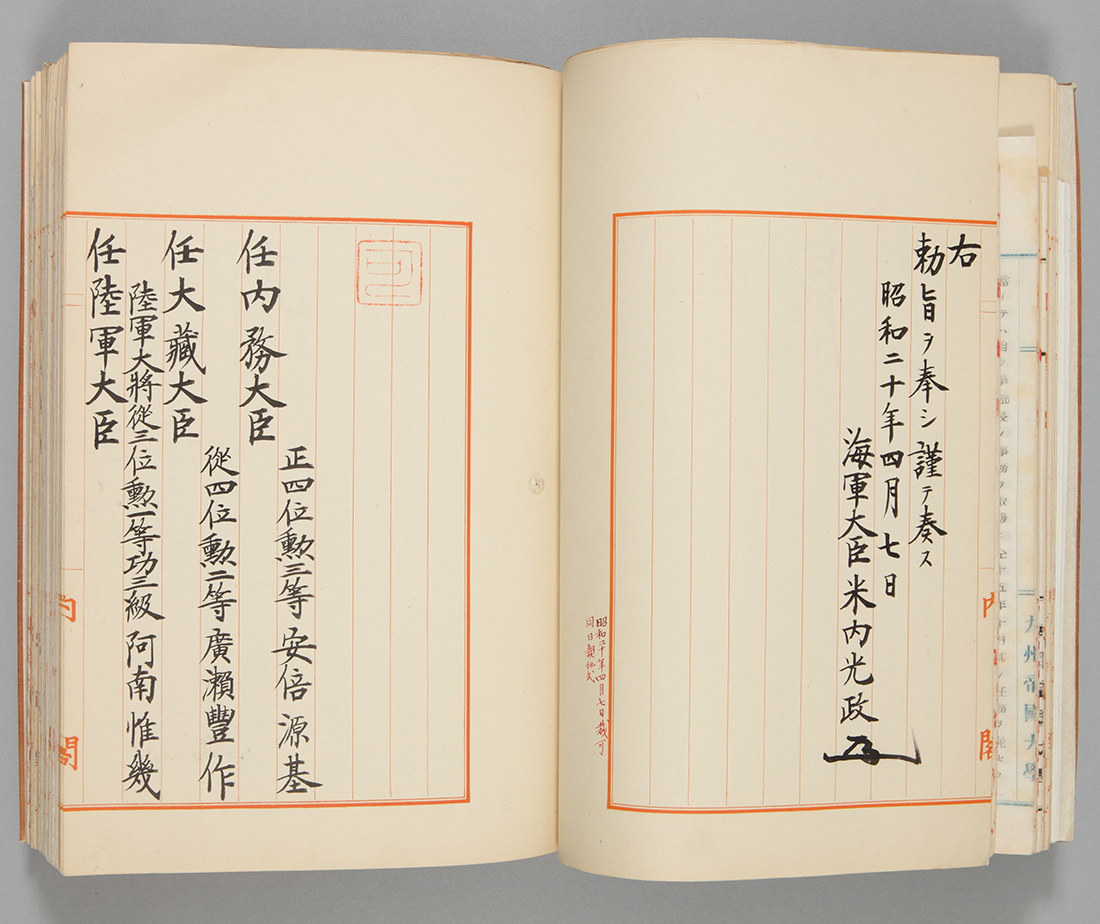 右
勅旨ヲ奉シ謹テ奏ス
昭和二十年四月七日
海軍大臣米内光政
昭和二十年四月七日裁可
同日親任式
内閣
九州帝國大學
可
正四位勲三等安倍源基
任内務大臣
從四位勲二等廣瀬豐作
任大藏大臣
陸軍大將從三位勲一等功三級阿南惟幾
任陸軍大臣
内閣